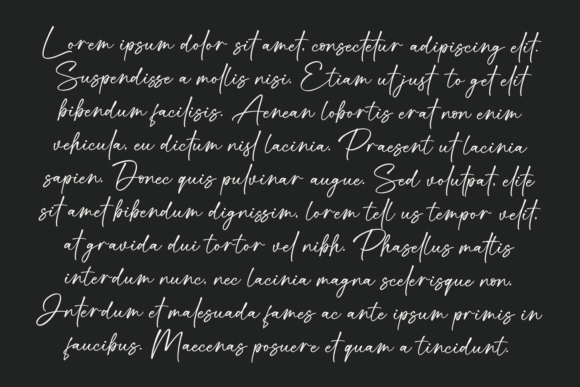 Lorem ipsum dolor sit amet, consectetur adipiscing elit.
Suspendisse a mollis nisi. Etiam ut just to get elit
bibendum facilisis. Aenean lobortis erat non enim
vehicula, eu dictum nisl lacinia. Praesent ut lacinia
sapien. Donec quis pulvinar augue. Sed volutpat, elite
sit amet bibendum dignissim, lorem tell us tempor velit,
at gravida dui tortor vel nibh. Phasellus mattis
interdum nunc, nec lacinia magna scelerisque non.
Interdum et malesuada fames ac ante ipsum primis in
faucibus. Maecenas posuere et quam a tincidunt.